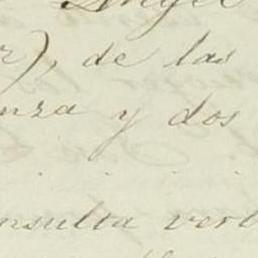 Angel
r), de las
nza y dos
nsulta verb